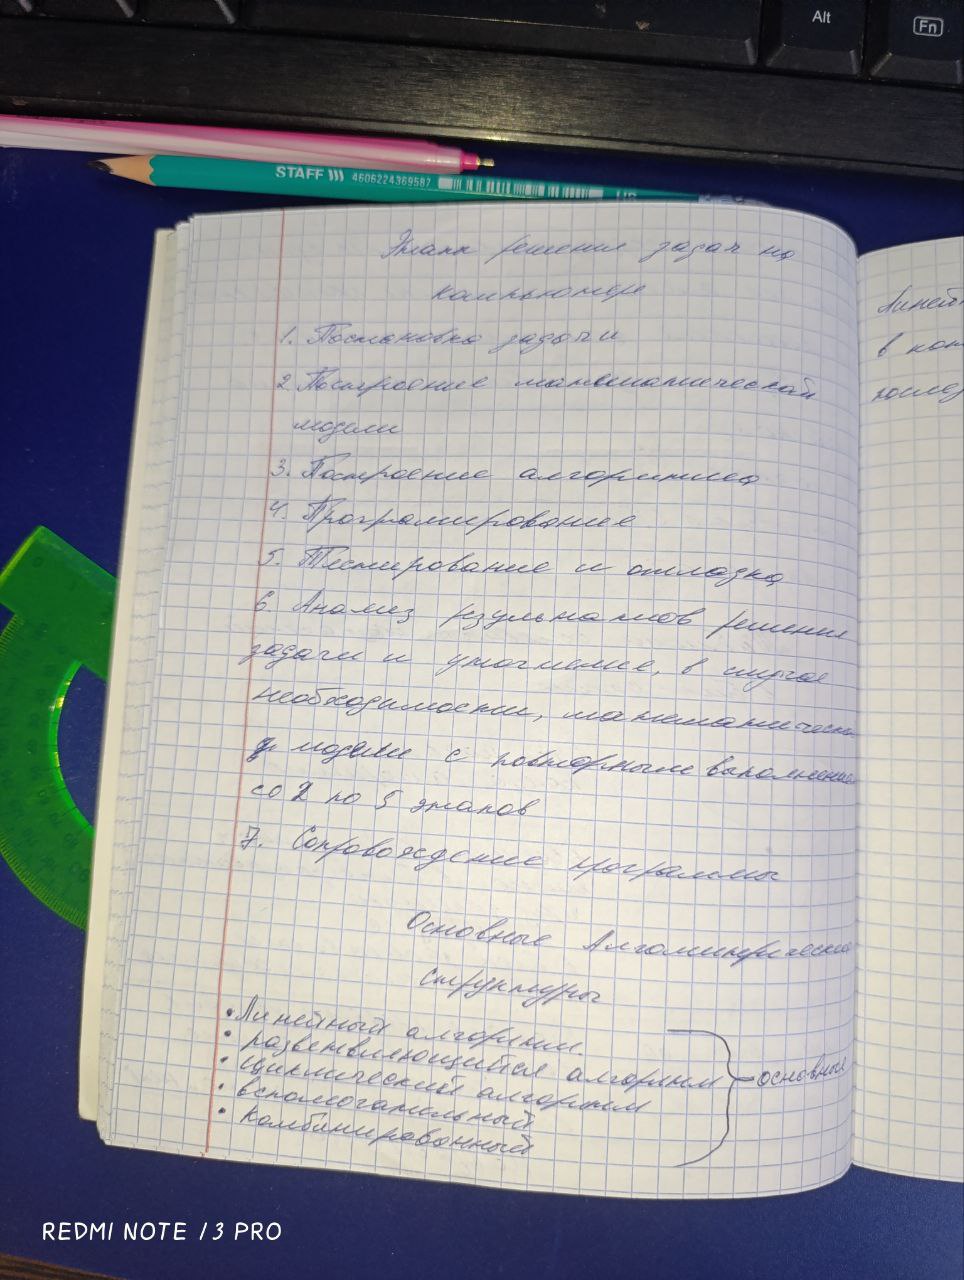 Alt
Fn
STAFF
4606224369587
Этапы решения задач на
компьютере
1. Постановка задачи
2. Построение математической
модели
3. Построение алгоритма
4. Програмирование
5. Тестирование и отладка
6. Анализ результатов решения
задачи и уточнение, в случае
необходимости, математической
модели с повторным выполнением
со 2 по 5 этапов
7. Сопровождение программы
Основные Алгоритмические
структуры
• Линейный алгоритм.
• разветвляющийся алгоритм
• циклический алгоритм
• вспомогательный
• Комбинированный
основные
Линей
в ко
послед
REDMI NOTE 13 PRO